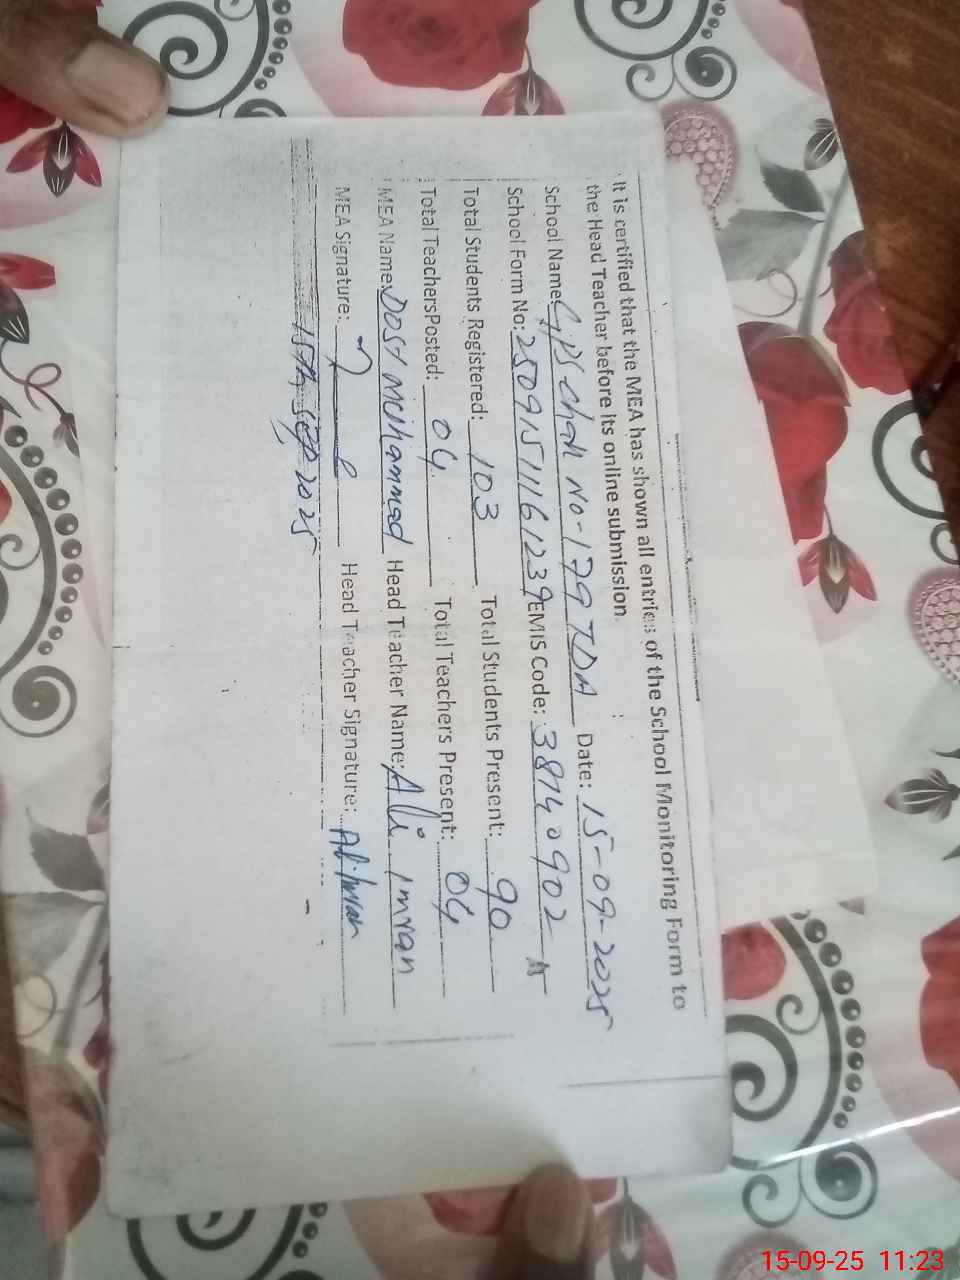 It is certified that the MEA has shown all entries of the School Monitoring Form to
the Head Teacher before its online submission.
School Name: GPS Chak No-179 TDA Date: 15-09-2025
School Form No: 25091511161239 EMIS Code: 38140902
Total Students Registered: 103 Total Students Present: 90
Total Teachers Posted: 04 Total Teachers Present: 04
MEA Name: Dost Mohammad Head Teacher Name: Ali Imran
MEA Signature: Head Teacher Signature: Ali Imran
15th, Sep 2025
15-09-25 11:23